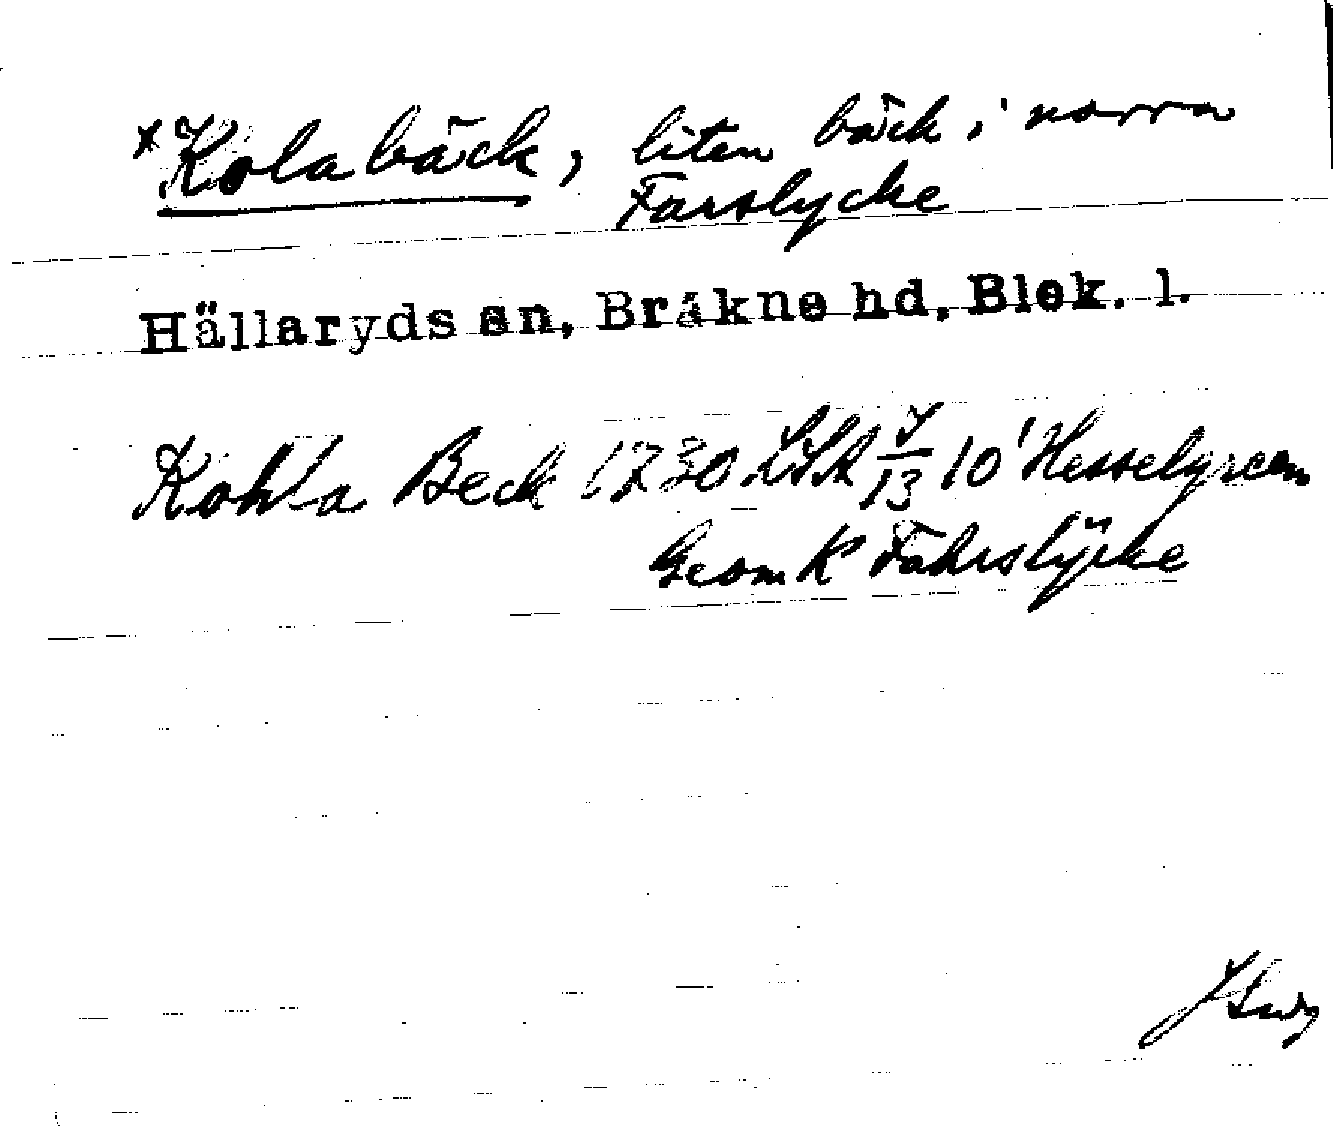 *Kolabäck, liten bäck i norra
Farslycke
Hällaryds sn, Bräkne hd, Blek. l.
Kohla Beck 1730 LSA 13 10 Hesselgreen
Geom K Fahrslÿcke